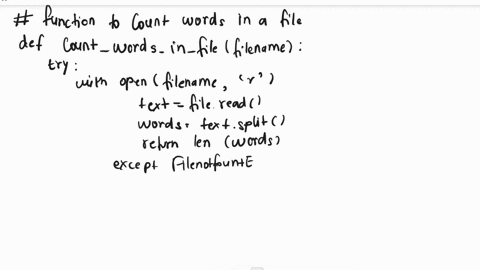 # function to Count words in a file
def Count_words_in_file(filename):
try:
with open(filename, 'r')
text = file.read()
words = text.split()
return len (words)
except FilenotfountE